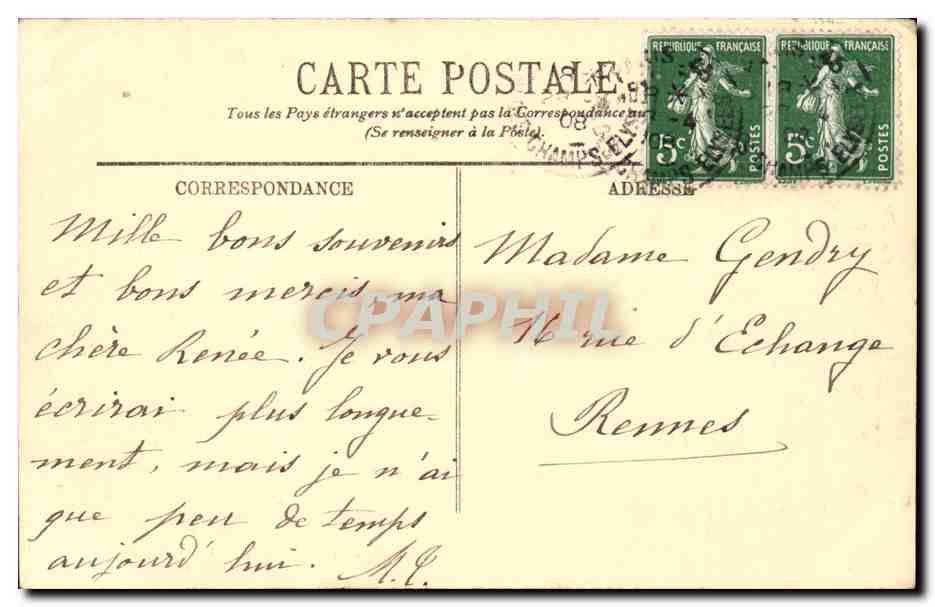 CARTE POSTALE
Tous les Pays étrangers n'acceptent pas la Correspondance au
(Se renseigner à la Poste).
REPUBLIQUE FRANÇAISE
5c
POSTES
REPUBLIQUE FRANÇAISE
5c
POSTES
CHAMPS-ELYSEES
08
CORRESPONDANCE
Mille bons souvenirs
et bons mercis, ma
chère Renée. Je vous
écrirai plus longue-
ment, mais je n'ai
que peu de temps
aujourd'hui.
ADRESSE
Madame Gendry
16 rue d'Echange
Rennes
CPAPHIL